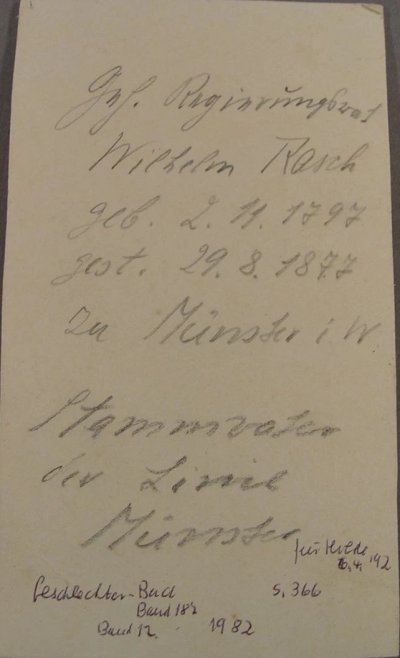 Geh. Regierungsrat
Wilhelm Rasch
geb. 2. 11. 1797
gest. 29. 8. 1877
zu Münster i. W.
Stammvater
der Linie
Münster
für
Geschlechter-Buch S. 366
Band 187
Band 12. 1982